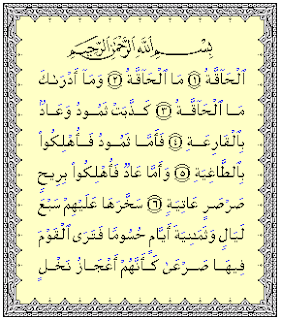 بِسْمِ ٱللَّهِ ٱلرَّحْمَٰنِ ٱلرَّحِيمِ
ٱلْحَآقَّةُ ۝١ مَا ٱلْحَآقَّةُ ۝٢ وَمَآ أَدْرَىٰكَ
مَا ٱلْحَآقَّةُ ۝٣ كَذَّبَتْ ثَمُودُ وَعَادٌۢ
بِٱلْقَارِعَةِ ۝٤ فَأَمَّا ثَمُودُ فَأُهْلِكُوا۟
بِٱلطَّاغِيَةِ ۝٥ وَأَمَّا عَادٌ فَأُهْلِكُوا۟ بِرِيحٍ
صَرْصَرٍ عَاتِيَةٍ ۝٦ سَخَّرَهَا عَلَيْهِمْ سَبْعَ
لَيَالٍ وَثَمَٰنِيَةَ أَيَّامٍ حُسُومًا فَتَرَى ٱلْقَوْمَ
فِيهَا صَرْعَىٰ كَأَنَّهُمْ أَعْجَازُ نَخْلٍ